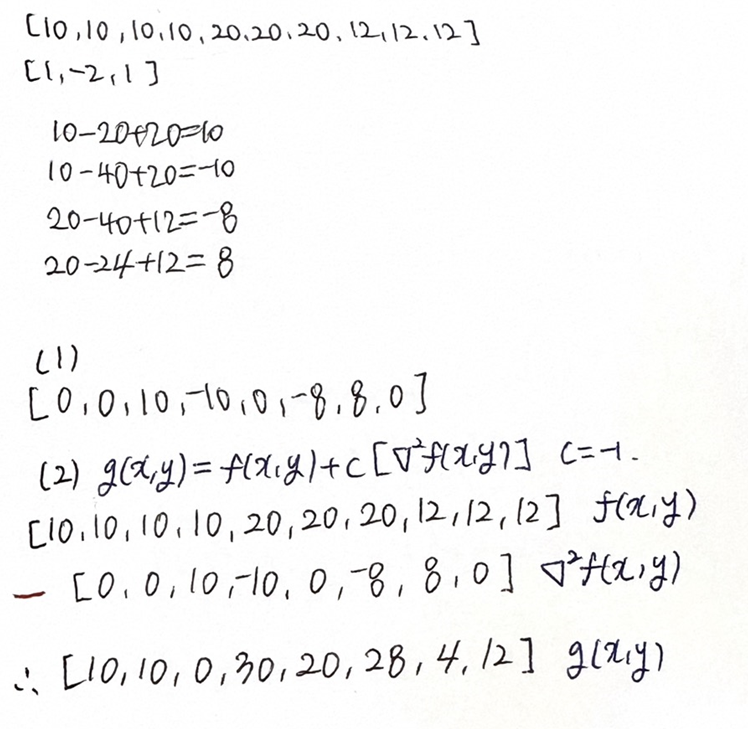 [10,10,10,10,20,20,20,12,12,12]
[1,-2,1]
10-20+20=10
10-40+20=-10
20-40+12=-8
20-24+12=8
(1)
[0,0,10,-10,0,-8,8,0]
(2) g(x,y)=f(x,y)+c[∇²f(x,y)] c=-1.
[10,10,10,10,20,20,20,12,12,12] f(x,y)
- [0,0,10,-10,0,-8,8,0] ∇²f(x,y)
∴ [10,10,0,30,20,28,4,12] g(x,y)